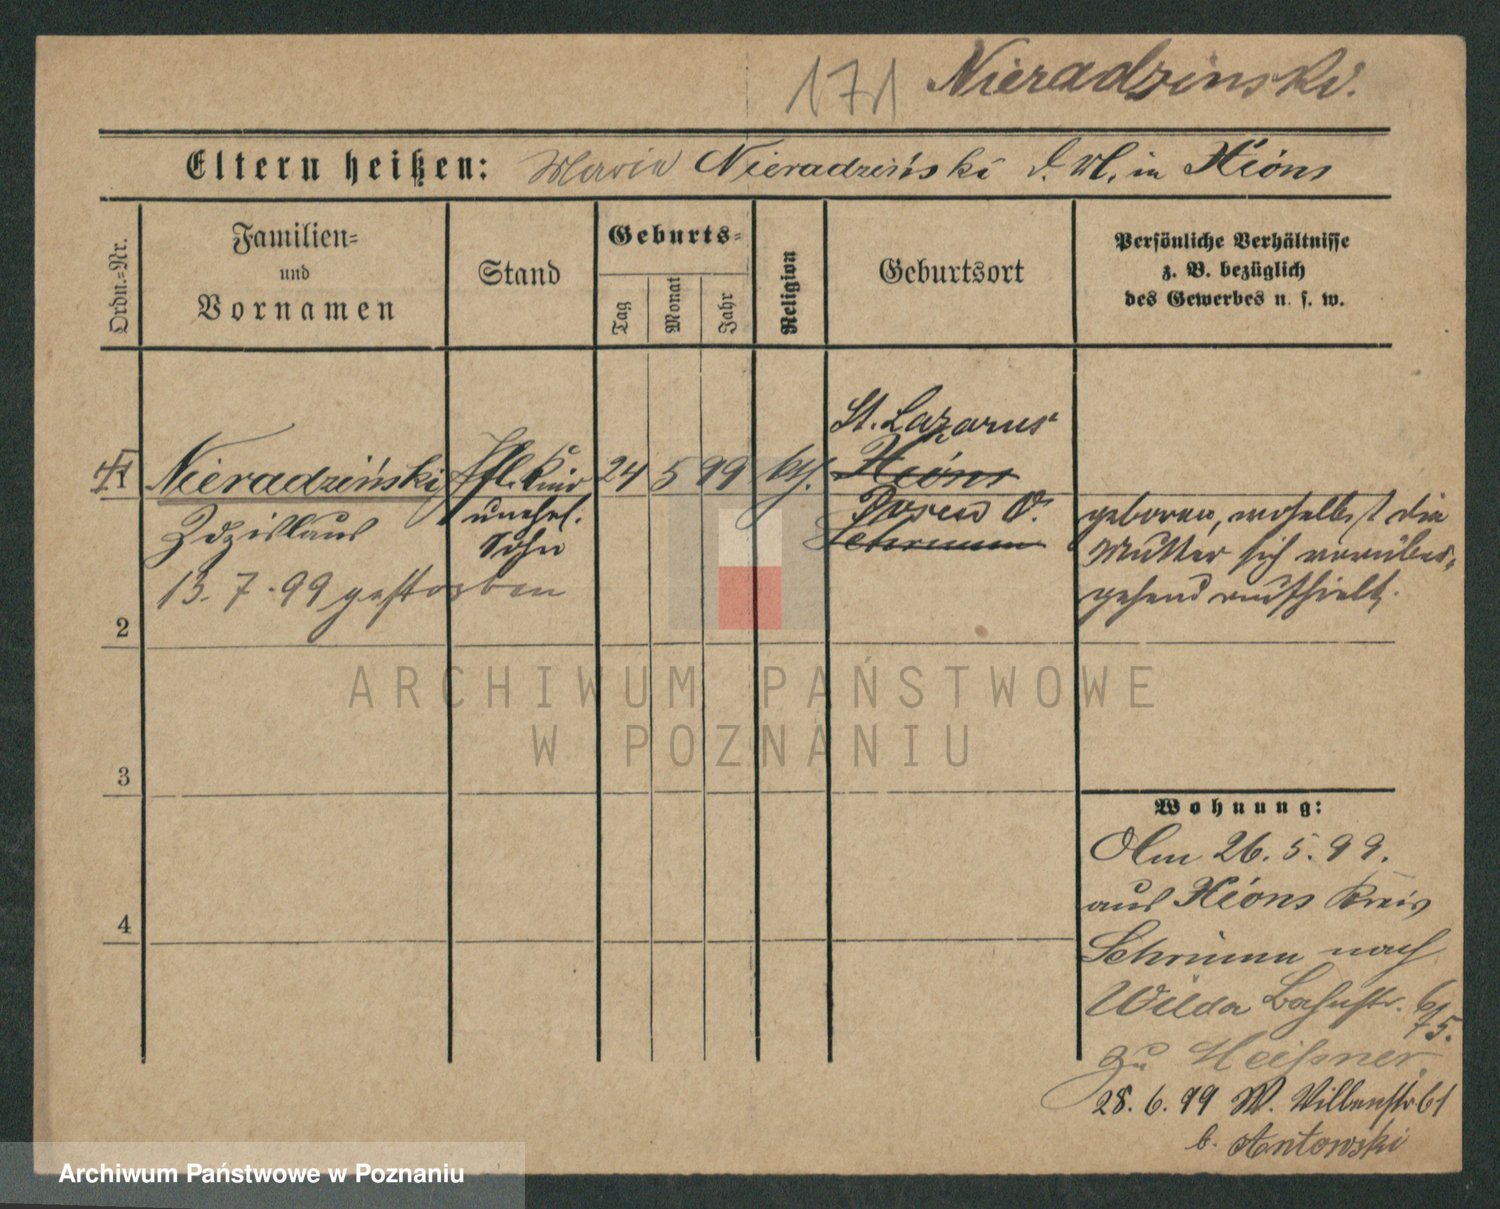 171 Nieradzinski.
Eltern heißen: Maria Nieradziński d. M. in Xions
Ordn.=Nr.
Familien=
und
Vornamen
Stand
Geburts=
Tag
Monat
Jahr
Religion
Geburtsort
Persönliche Verhältnisse
z. B. bezüglich
des Gewerbes u. s. w.
1 Nieradziński Pfl. Kind 24 5 99 kth. St. Lazarus
Xions
Zdzislaus unehel. Posen O. geboren, woselbst die
Sohn Schrimm Mutter sich vorüber=
13. 7. 99 gestorben gehend aufhielt.
2
3
4
Wohnung:
Am 26. 5. 99.
aus Xions Kreis
Schrimm nach
Wilda Bahnstr.
75.
zu Meißner.
28. 6. 99 W. Villenstr 61
b. Antowski
ARCHIWUM PAŃSTWOWE
W POZNANIU
Archiwum Państwowe w Poznaniu